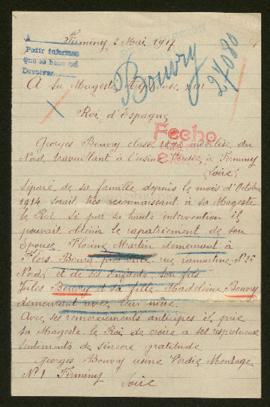 Firminy 2 Mai 1917
A
Pedir informes
Bouvry
24080
A Sa Majesté
Roi d'Espagne
Fecho
Georges Bouvry classe 1898
Nord, travaillant à l'usine Verdié à Firminy
Loire
séparé de sa famille depuis le mois d'Octobre
1914 serait très reconnaissant à sa Majesté
le Roi si par sa haute intervention il
pouvait obtenir le rapatriement de son
Epouse Martin demeurant à
Flers Bourg rue N° 25
Nord et de ses enfants son fils
Jules Bouvry et sa fille Madeleine Bouvry
demeurant avec leur mère.
Avec ses remerciements anticipés il prie
sa Majesté le Roi de croire à ses respectueux
sentiments de sincère gratitude
Georges Bouvry usine Verdié Montage
N° 1 Firminy
Loire